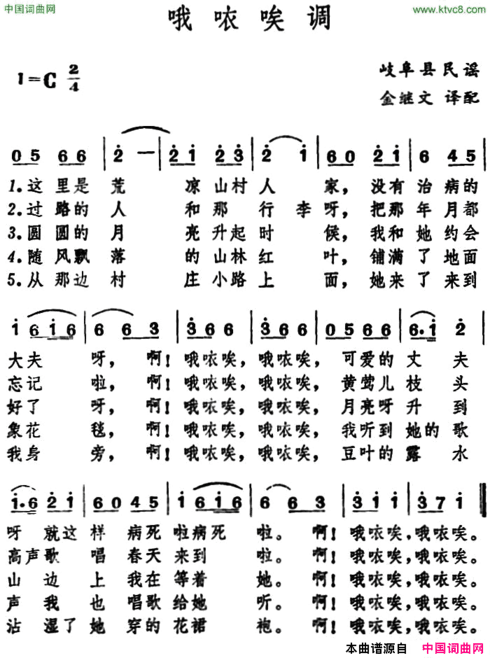 中国词曲网
www.ktvc8.com
哦哝唉调
1=C 2/4
岐阜县民谣
金继文 译配
0 5 6 6 2 — 2 1 2 3 2 1 6 0 2 1 6 4 5
1.这里是荒 凉山村人 家，没有治病的
2.过路的人 和那行李呀，把那年月都
3.圆圆的月 亮升起时 候，我和她约会
4.随风飘落 的山林红 叶，铺满了地面
5.从那边村 庄小路上 面，她来了来到
1 6 1 6 6 6 3 3 6 6 2 6 6 3 6 6 1 6 6 0 5 6 6 6·1 2
大夫 呀，啊！哦哝唉，哦哝唉，可爱的丈夫
忘记 啦，啊！哦哝唉，哦哝唉，黄莺儿枝头
好了 呀，啊！哦哝唉，哦哝唉，月亮呀升到
象花 毯，啊！哦哝唉，哦哝唉，我听到她的歌
我身 旁，啊！哦哝唉，哦哝唉，豆叶的露水
1·6 2 1 6 0 4 5 1 6 1 6 6 6 3 3 1 1 3 7 1
呀就这样病死啦病死 啦。啊！哦哝唉，哦哝唉。
高声歌唱春天来到 啦。啊！哦哝唉，哦哝唉。
山边上我在等着 她。啊！哦哝唉，哦哝唉。
声我也唱歌给她 听。啊！哦哝唉，哦哝唉。
沾湿了她穿的花裙 袍。啊！哦哝唉，哦哝唉。
本曲谱源自 中国词曲网